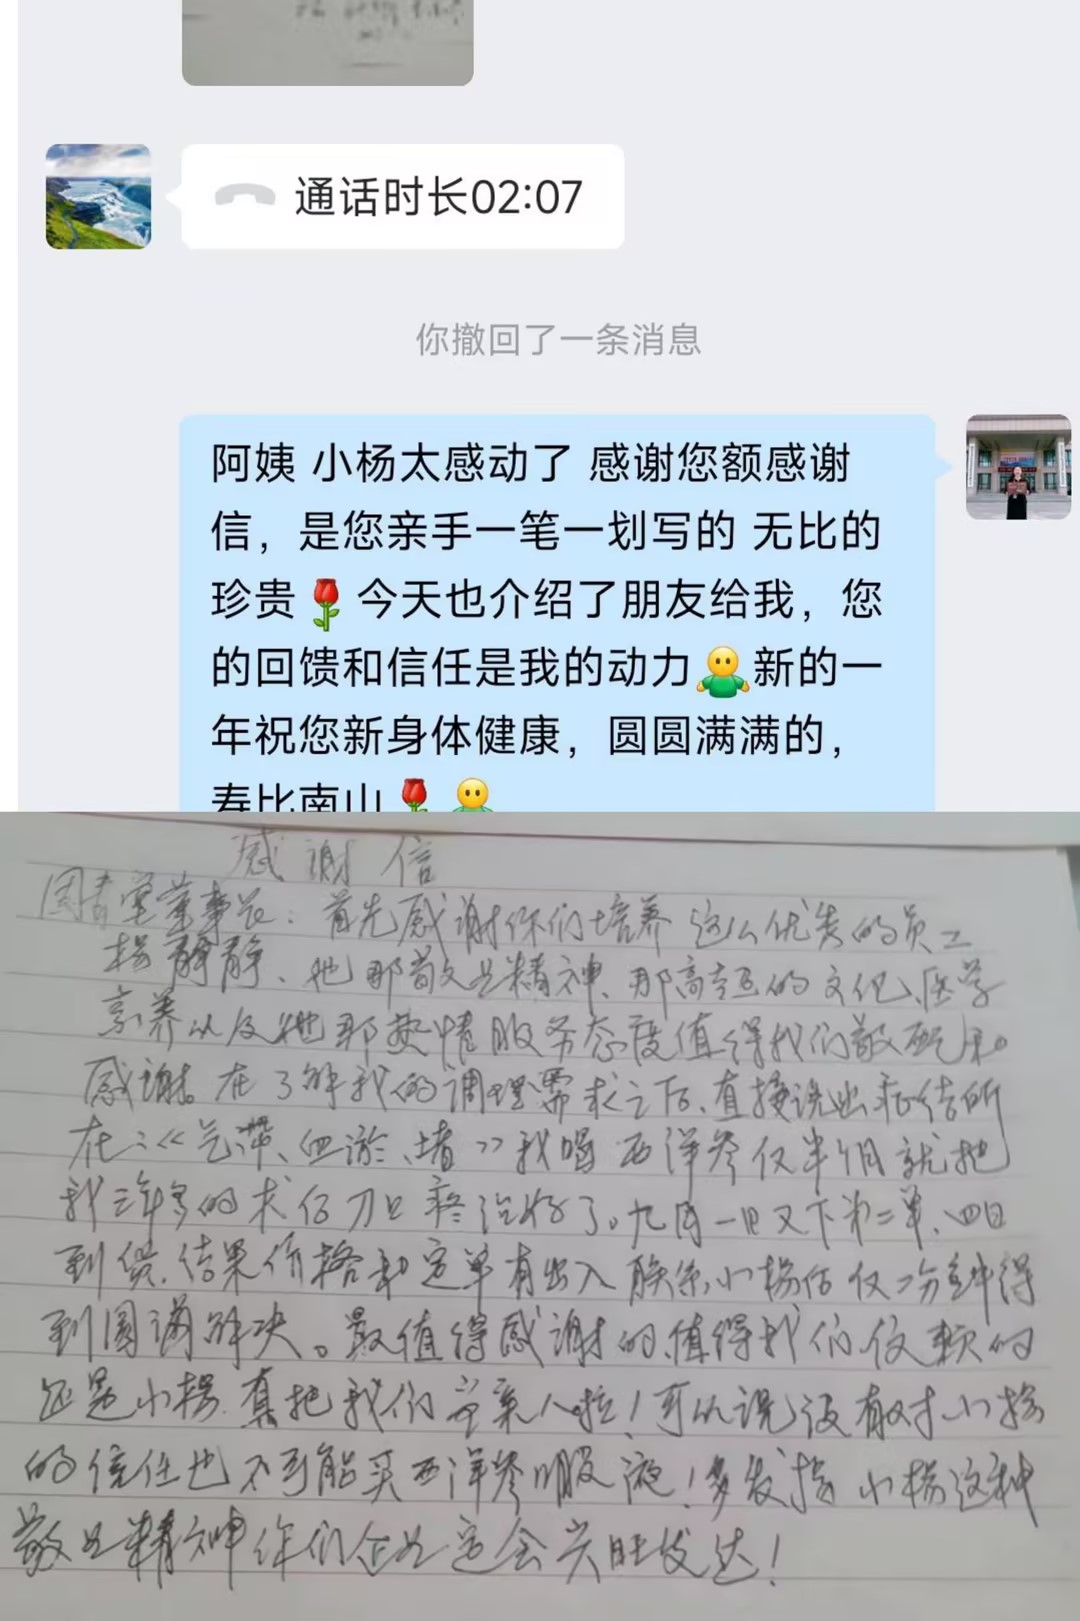 通话时长02:07
你撤回了一条消息
阿姨 小杨太感动了 感谢您额感谢
信，是您亲手一笔一划写的 无比的
珍贵🌹今天也介绍了朋友给我，您
的回馈和信任是我的动力🤗新的一
年祝您新身体健康，圆圆满满的，
寿比南山🌹🤗
感谢信
董事长：首先感谢你们培养这么优秀的员工
杨静静、她那敬业精神、那高超的文化、医学
素养以及她那热情服务态度值得我们敬配和
感谢。在了解我的调理需求之后、直接说出症结所
在：《气滞、血淤、堵》我喝西洋参仅半个月就把
我三年多的术后刀口疼治好了。九月一日又下第二单、四日
到货，结果价格和定单有出入联系小杨后仅2分钟得
到圆满解决。最值得感谢的、值得我们信赖的
还是小杨、真把我们当亲人啦！可以说没有对小杨
的信任也不可能买西洋参口服液！多发扬小杨这种
敬业精神你们企业定会兴旺发达！